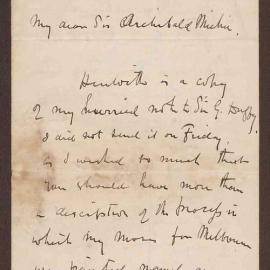 My dear Sir Archibald Michie,
Herewith is a copy
of my hurried note to Sir G.
I did not send it on Friday
as I wished so much that
you should have more than
a description of the process in
which my